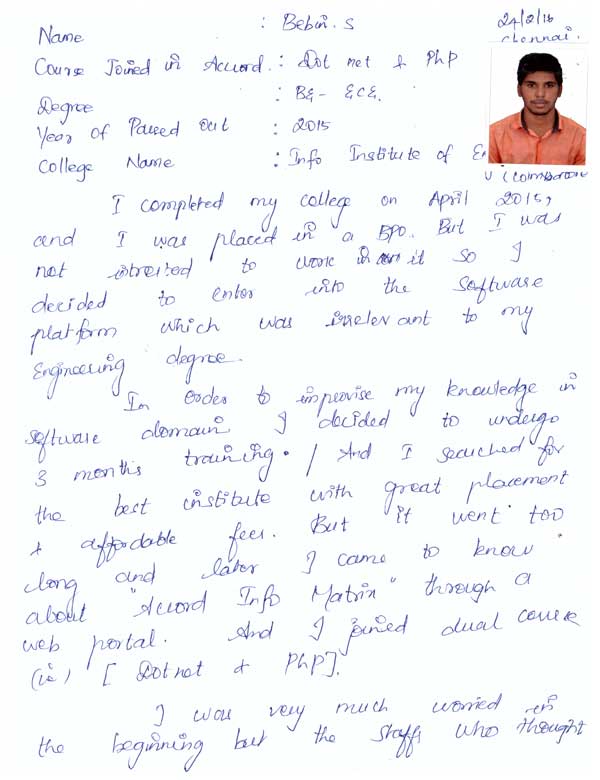 Name : Bebin. S 24/2/16
Chennai.
Course Joined in Accord : Dot net & PhP
Degree : BE - ECE.
Year of Passed Out : 2015
College Name : Info Institute of
I completed my college on April 2015,
and I was placed in a BPO. But I was
not to work in it so I
decided to enter into the Software
platform which was irrelevant to my
Engineering degree.
In order to improvise my knowledge in
software domain I decided to undergo
3 months training. / And I searched for
the best institute with great placement
& affordable fees. But it went too
long and later I came to know
about "Accord Info Matrix" through a
web portal. And I joined dual course
(ie) [ Dotnet & PhP].
I was very much worried in
the beginning but the staffs who thought